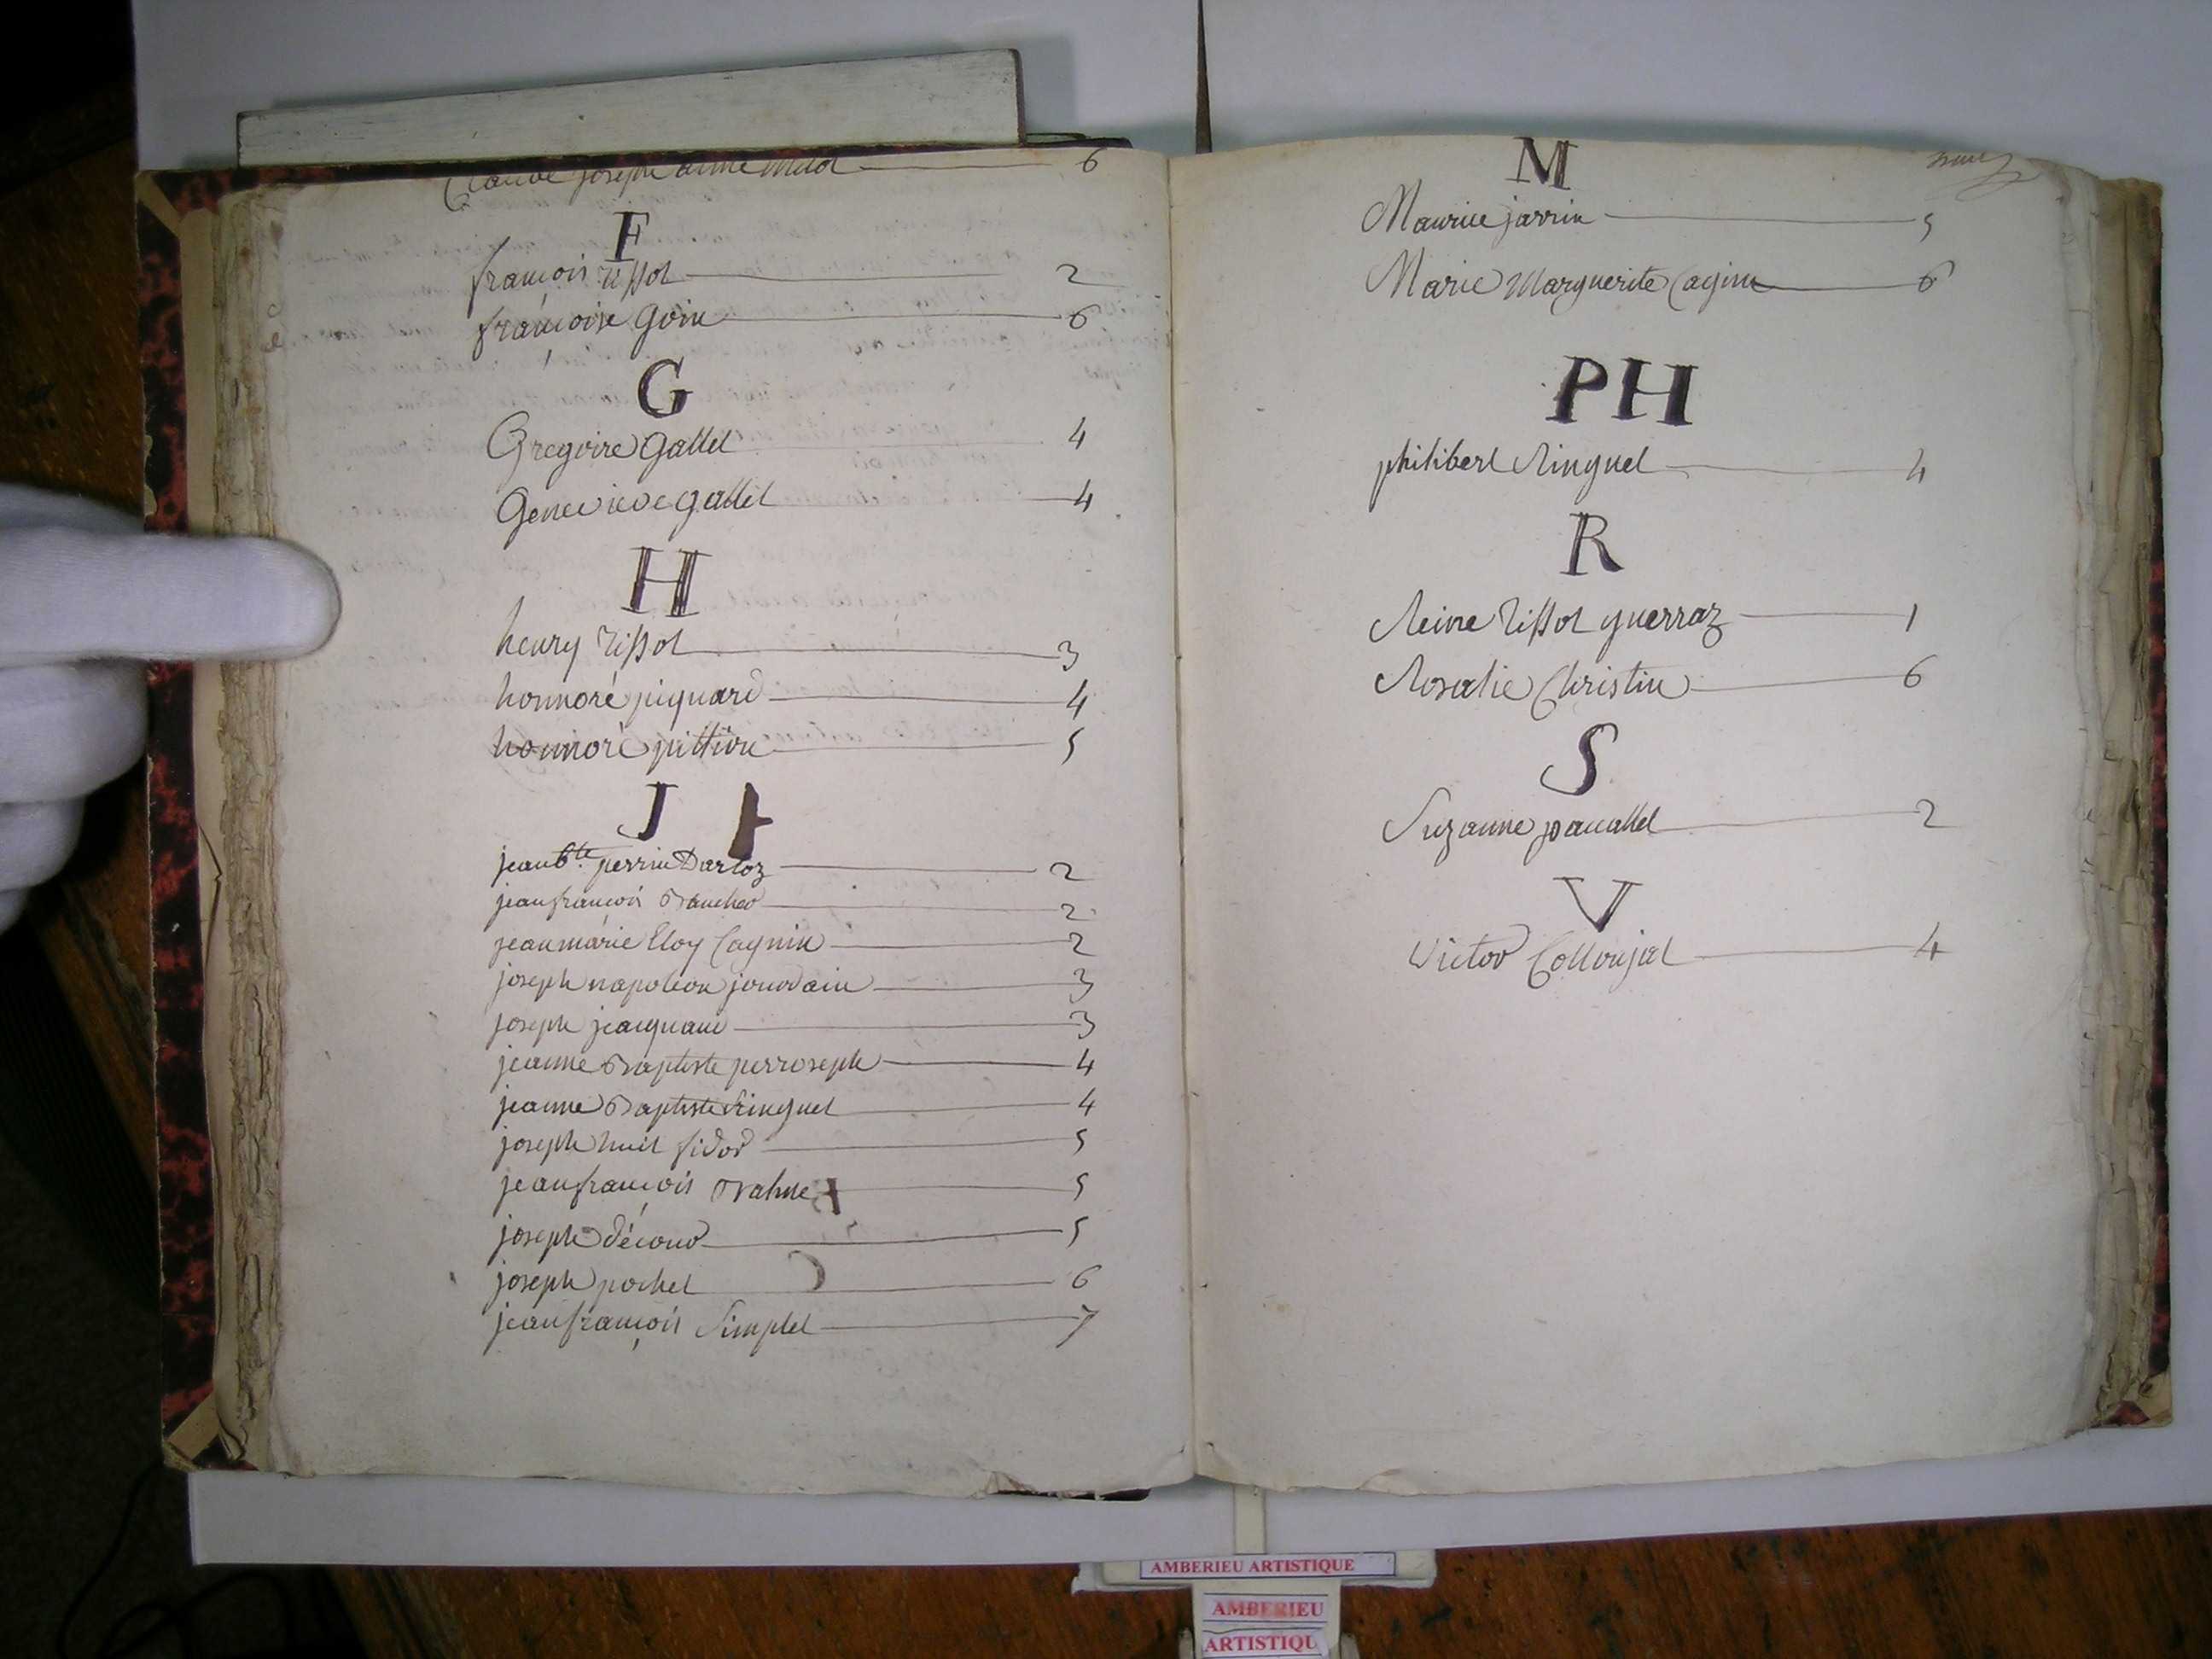 Claude joseph aimé Millot 6
F
françois Tissot 2
françoise Goin 6
G
Gregoire Gallet 4
Genevieve gallet 4
H
henry Tissot 3
honnoré piquard 4
honnoré pittion 5
J
jean Bte perrin Darloz 2
jean françois 2
jean marie Eloy Cagnin 2
joseph napoleon jourdain 3
joseph jeacquand 3
jeanne Baptiste perroseph 4
jeanne Baptiste Ringuet 4
joseph huit fidor 5
jean françois 5
joseph décour 5
joseph pochet 6
jean françois Simplet 7
M
Maurice jarrin 5
Marie Marguerite Cagnin 6
PH
philibert Ringuet 4
R
Reine Tissot guerraz 1
Rosalie Christin 6
S
Suzanne pauallet 2
V
Victor Collonjat 4
AMBERIEU ARTISTIQUE
AMBERIEU
ARTISTIQU